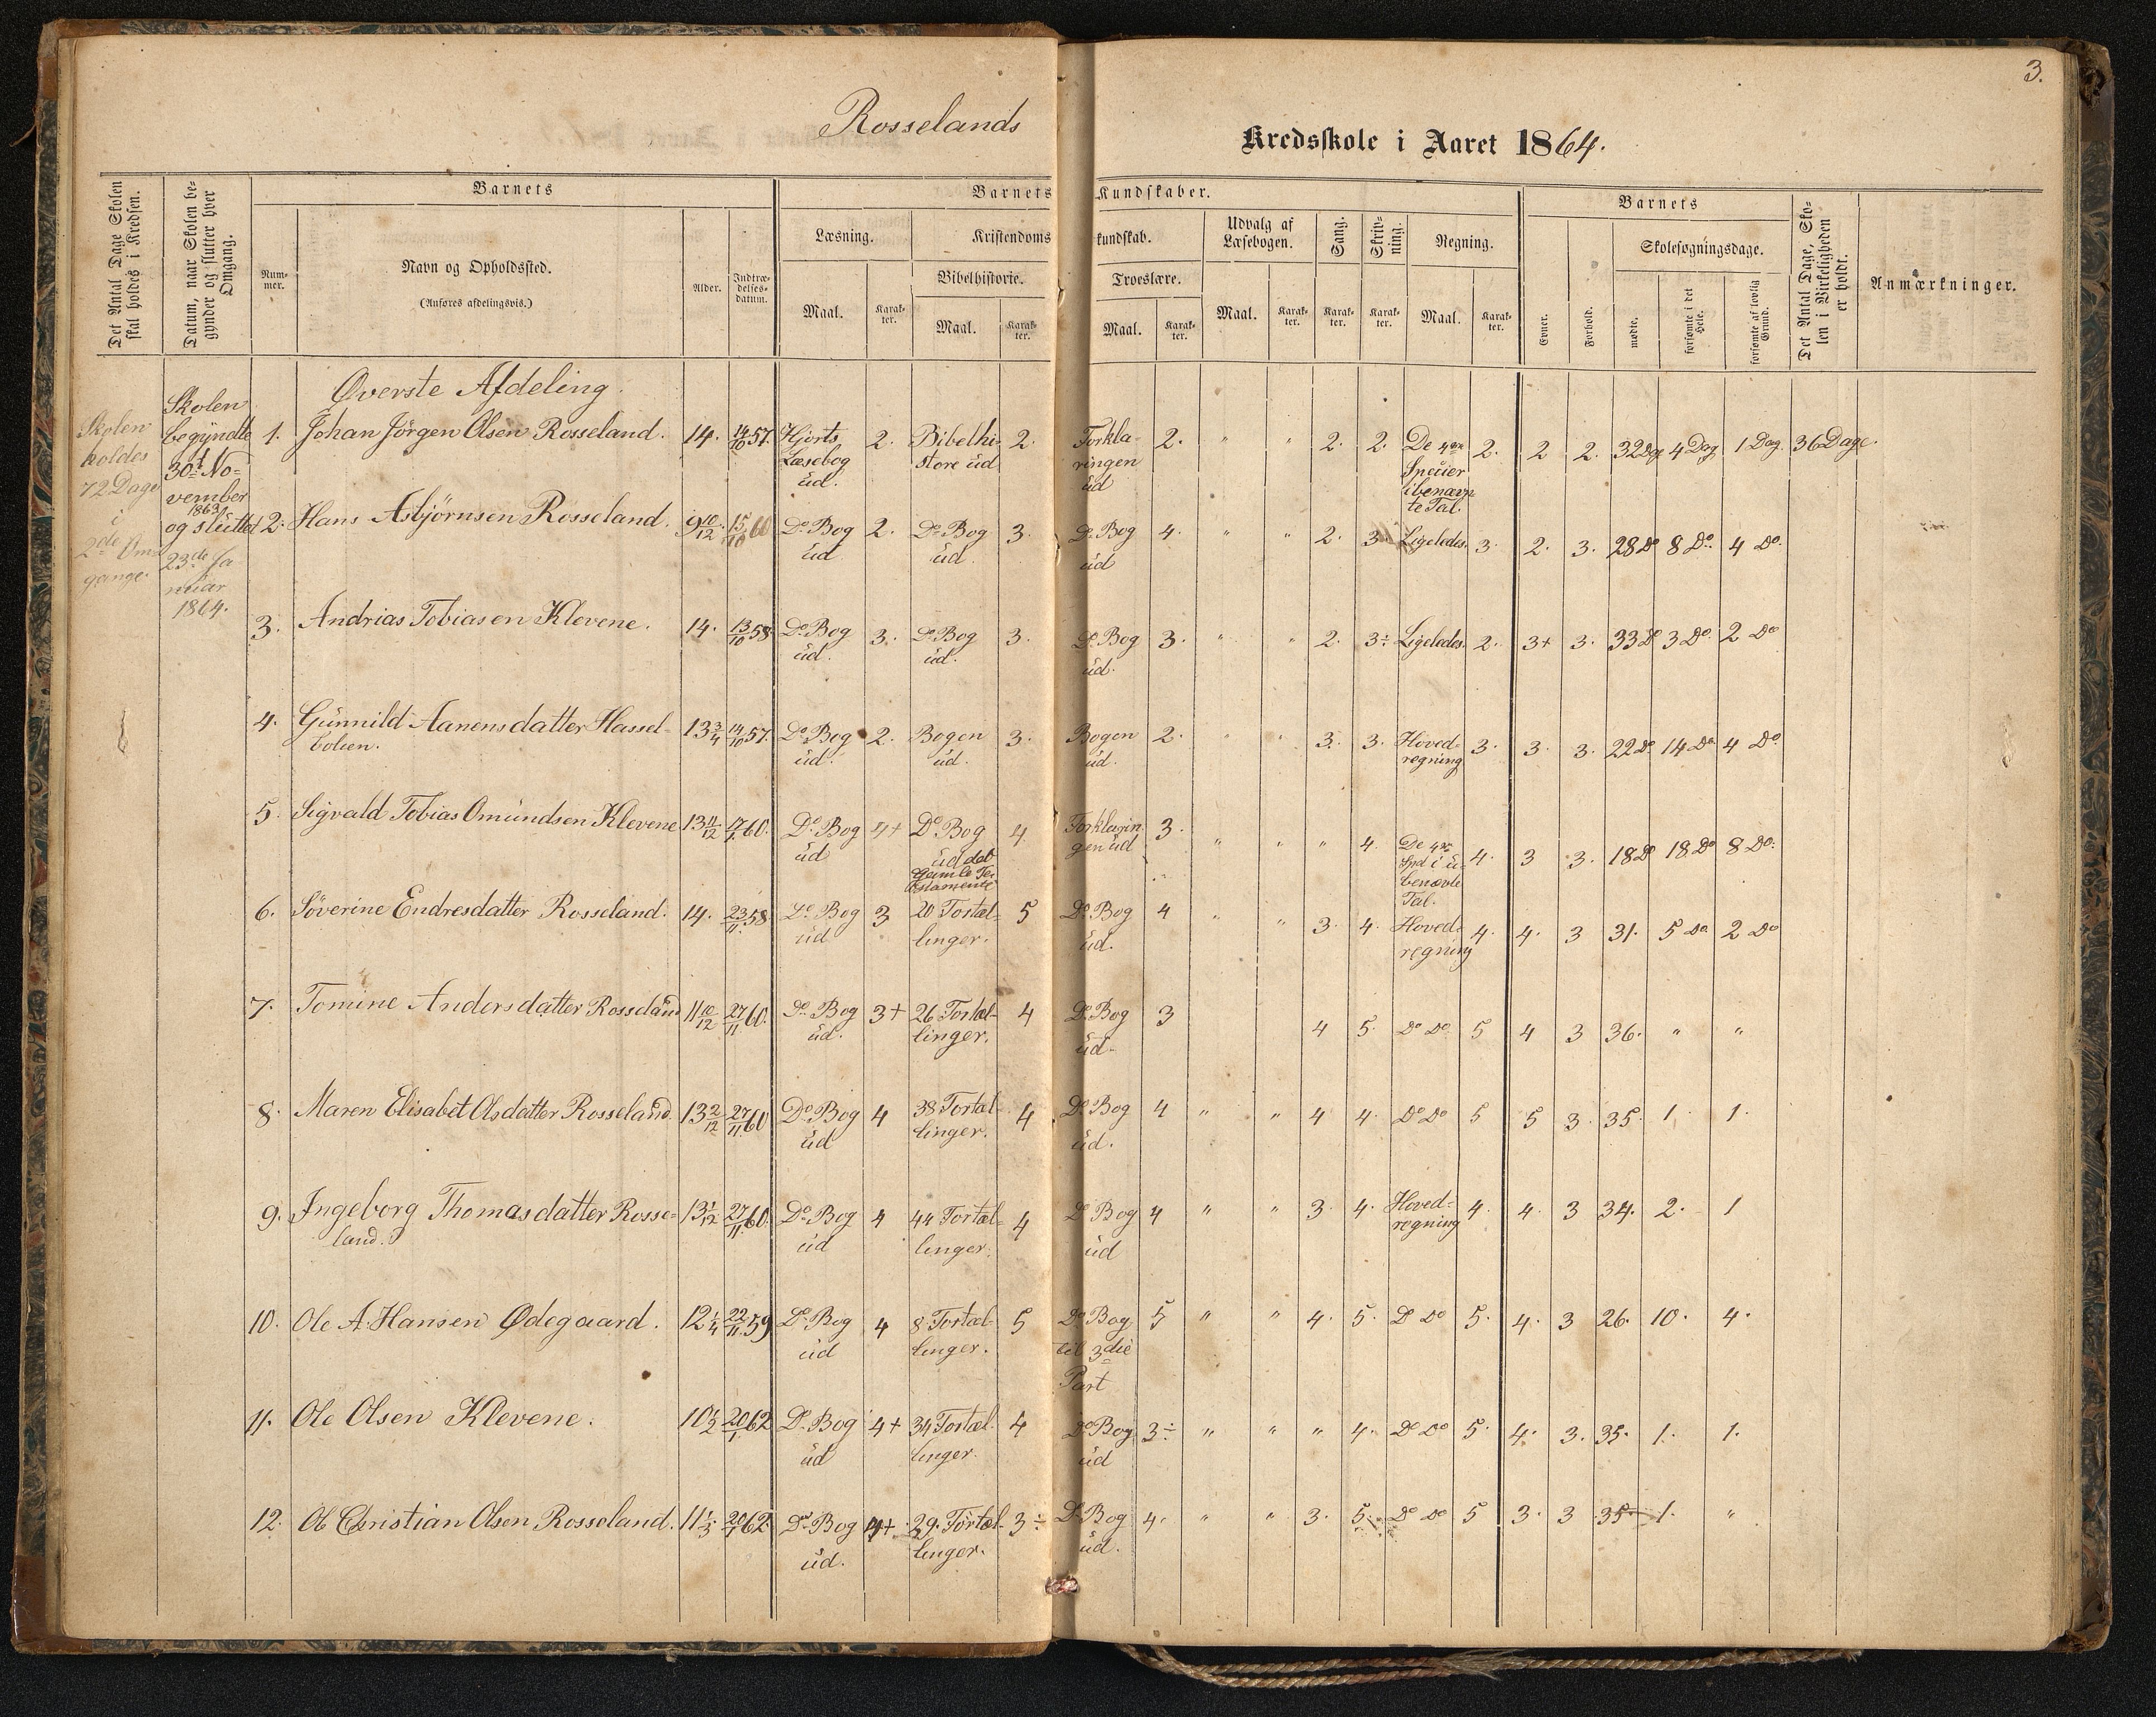 3.
Rosselands Kredsskole i Aaret 1864.
Det Antal Dage Skolen skal holdes i Kredsen.
Datum, naar Skolen begynder og slutter hver Omgang.
Barnets
Nummer.
Navn og Opholdssted.
(Anføres afdelingsvis.)
Alder.
Indtrædelsesdatum.
Barnets Kundskaber.
Læsning.
Maal. Karakter.
Kristendomskundskab.
Bibelhistorie.
Maal. Karakter.
Troeslære.
Maal. Karakter.
Udvalg af Læsebogen.
Maal. Karakter.
Sang.
Karakter.
Skrivning.
Karakter.
Regning.
Maal. Karakter.
Barnets
Evner.
Forhold.
Skolesøgningsdage.
mødte.
forsømte i det Hele.
forsømte af lovlig Grund.
Det Antal Dage, Skolen i Virkeligheden er holdt.
Anmærkninger.
Skolen
holdes
72 Dage
i
2de Om=
gange.
Skolen
begyndte
30te No=
vember
1863
og sluttet
23de Ja
nuar
1864.
Øverste Afdeling.
1. Johan Jörgen Olsen Rosseland. 14. 14/10 57. Hjorts Læsebog ud. 2. Bibelhistore ud 2. Forklaringen ud 2. " " 2. 2. De 4re Speuier i benævnte Tal. 2. 2 2. 32 Dag 4 Dag 1 Dag 36 Dage.
2. Hans Asbjörnsen Rosseland. 9 10/12 15/10 60 Do Bog ud 2. Do Bog ud. 3. Do Bog ud 4. " " 2. 3 Ligeledes. 3. 2. 3. 28 Do 8 Do. 4 Do.
3. Andrias Tobiasen Klevene. 14. 13/10 58 Do Bog ud. 3. Do Bog ud. 3. Do Bog ud. 3. " " 2. 3÷ Ligeledes. 2. 3+ 3. 33 Do 3 Do. 2 Do
4. Gunnild Aanensdatter Hassel-
bolien. 13 3/4 14/10 57. Do Bog ud. 2. Bogen ud. 3. Bogen ud. 2. " " 3. 3. Hovedregning 3. 3. 3. 22 Do 14 Do 4 Do.
5. Sigvald Tobias Omundsen Klevene 13 11/12 17/1 60. Do Bog ud 4+ Do Bog ud det gamle Testamente 4. Forklaringen ud 3. " " " 4. De 4re Spd i ubenævte Tal. 4. 3 3. 18 Do 18 Do 8 Do.
6. Söverine Endresdatter Rosseland. 14. 23/11 58 Do Bog ud 3 20 Fortællinger. 5 Do Bog ud. 4 " " 3. 4. Hovedregning 4. 4. 3 31. 5 Do 2 Do
7. Tomine Andersdatter Rosseland 11 10/12 27/11 60. Do Bog ud. 3+ 26 Fortællinger. 4 Do Bog ud. 3 4 5. Do Do 5 4 3 36. " "
8. Maren Elisabet Olsdatter Rosseland. 13 2/12 27/11 60 Do Bog ud 4 38 Fortællinger. 4 Do Bog ud. 4 " " 4 4. Do Do 5 5 3. 35. 1. 1.
9. Ingeborg Thomasdatter Rosse=
land. 13 1/12 27/11 60. Do Bog ud 4 44 Fortællinger. 4 Do Bog ud 4 " " 3. 4. Hovedregning 4. 4. 3 34. 2. 1
10. Ole A. Hansen Ødegaard. 12 1/4 22/11 59 Do Bog ud 4 8 Fortællinger. 5 Do Bog til 3die Part 5 " " 4. 5. Do Do 5. 4. 3 26. 10. 4.
11. Ole Olsen Klevene. 10 1/2 20/1 62 Do Bog ud 4+ 34 Fortællinger. 4 Do Bog ud 3÷ " " " 4. Do Do 5. 4. 3. 35. 1. 1.
12. Ole Christian Olsen Rosseland. 11 1/3 20/1 62 Do Bog ud. 4+ 29. Fortællinger. 3÷ Do Bog ud. 4. " " 3. 5. Do Do 5 3. 3 35 1. "